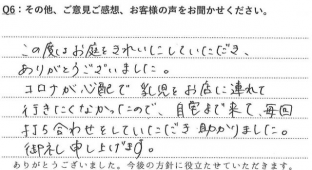 Q6：その他、ご意見ご感想、お客様の声をお聞かせください。
この度はお庭をきれいにしていただき、
ありがとうございました。
コロナが心配で乳児をお店に連れて
行きにくなかったので、自宅まで来て、毎回
打ち合わせをしていただき助かりました。
御礼申し上げます。
ありがとうございました。今後の方針に役立たせていただきます。